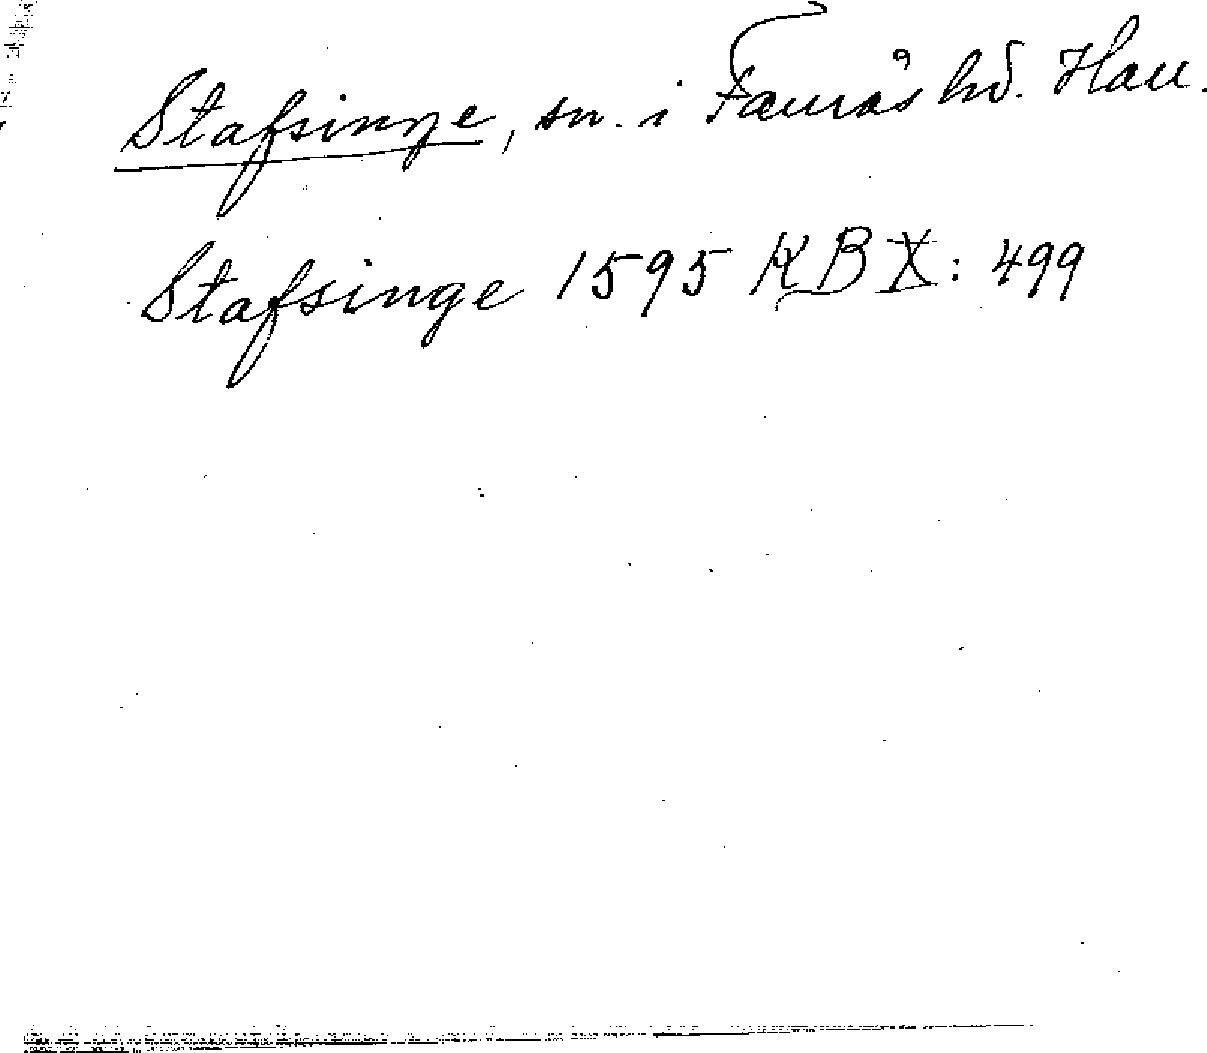 Stafsinge, sn. i Faurås hd. Hall.
Stafsinge 1595 KB X: 499